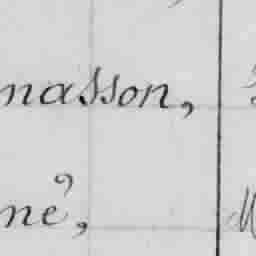 nasson,
né,